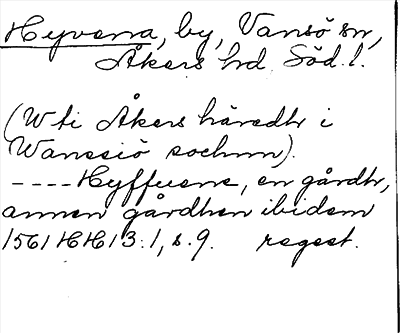 Hyvena, by, Vansö sn,
Åkers hd, Söd. l.
(W ti Åkers häredh i
Wanssiö sochnn).
---- Hyffuene, en gårdh,
annen gårdhen ibidem
1561 HH 13:1, s. 9. regest.